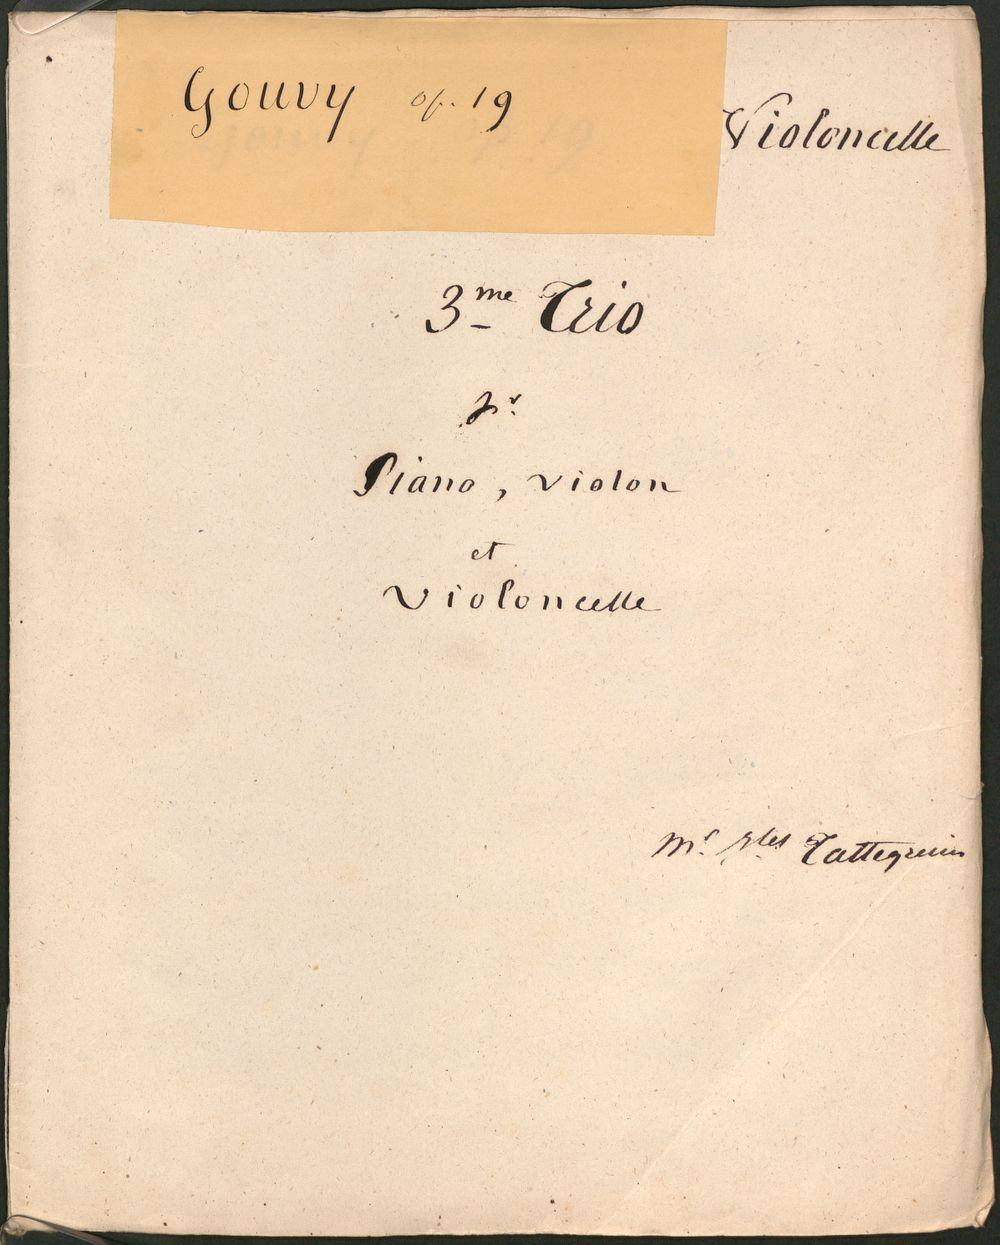 Gouvy op. 19
Violoncelle
3me Trio
pr
Piano, violon
et
Violoncelle
Mr Tattegrain